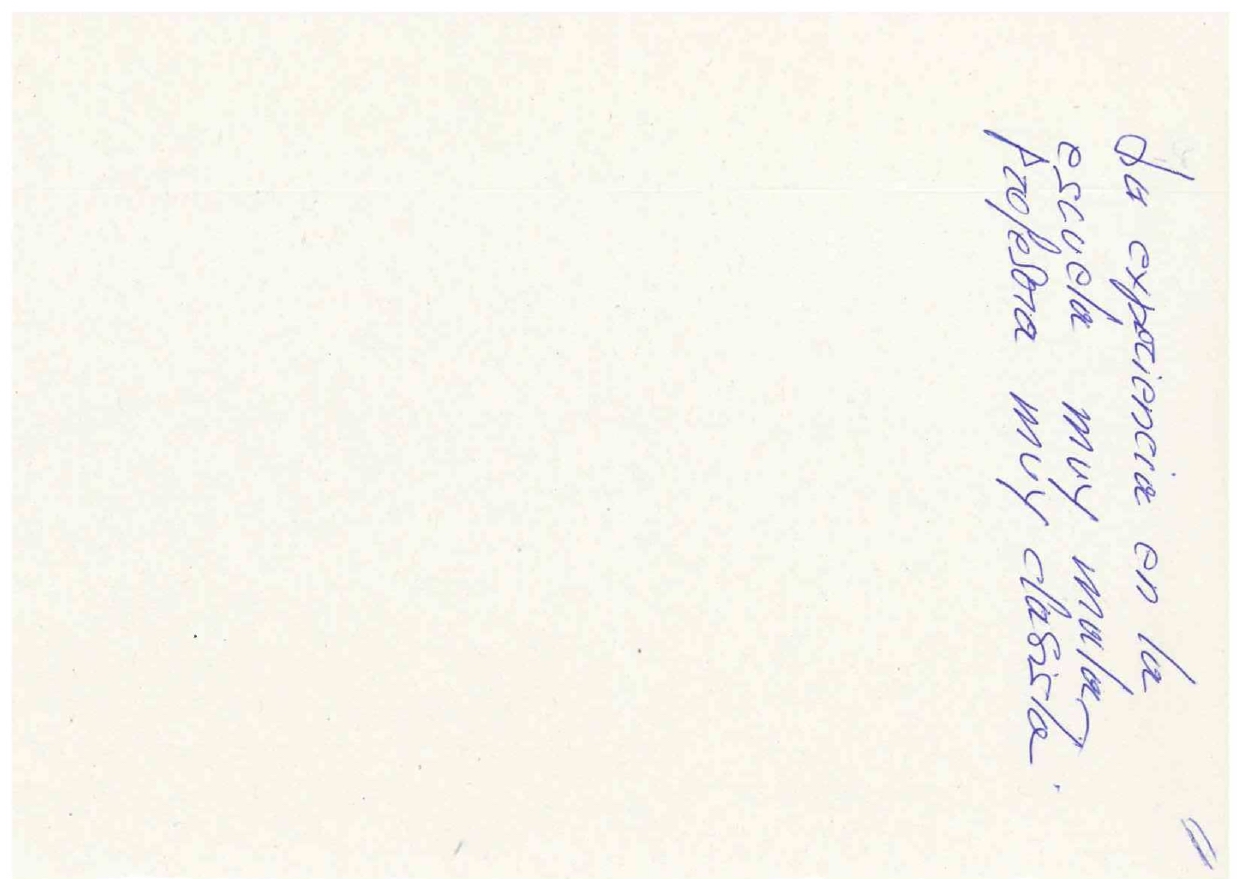 La experiencia en la
escuela muy mala
Profesora muy clasista.